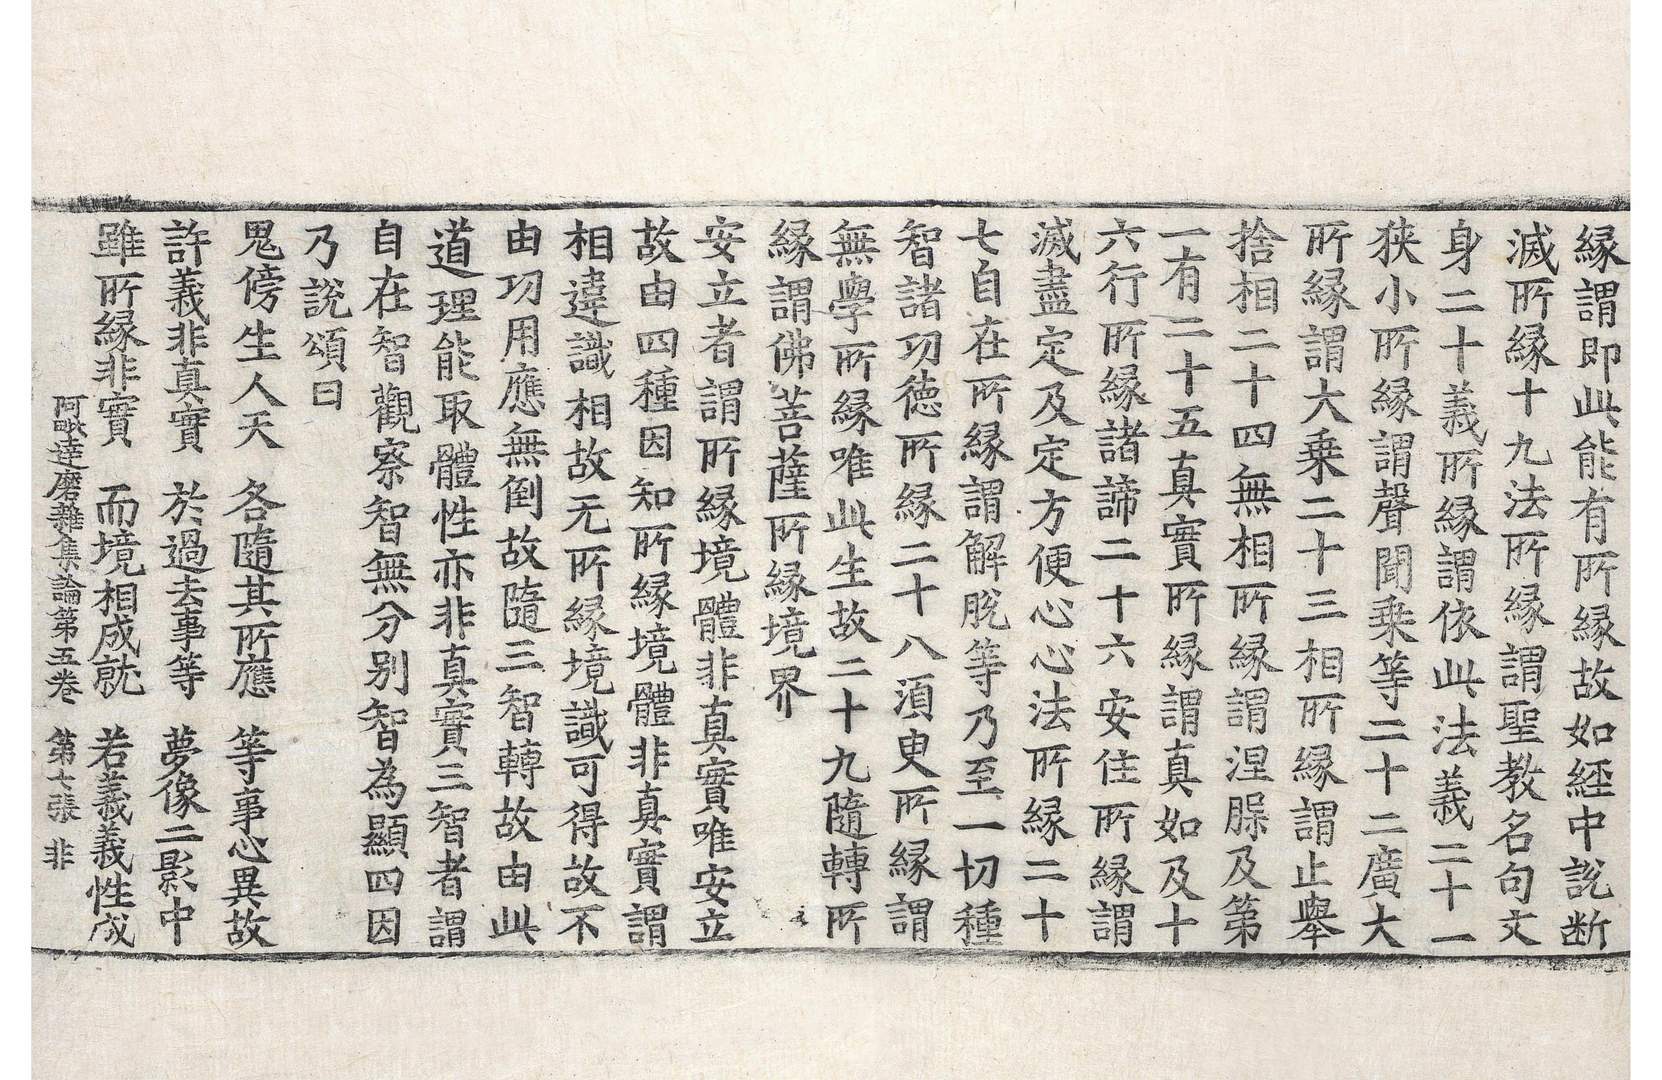 縁謂即此能有所縁故如經中說断
滅所縁十九法所縁謂聖教名句文
身二十義所縁謂依此法義二十一
狭小所縁謂聲聞乗等二十二廣大
所縁謂大乗二十三相所縁謂止舉
捨相二十四無相所縁謂涅槃及第
一有二十五真實所縁謂真如及十
六行所縁諸諦二十六安住所縁謂
滅盡定及定方便心心法所縁二十
七自在所縁謂解脫等乃至一切種
智諸功德所縁二十八須臾所縁謂
無學所縁唯此生故二十九隨轉所
縁謂佛菩薩所縁境界
安立者謂所縁境體非真實唯安立
故由四種因知所縁境體非真實謂
相違識相故无所縁境識可得故不
由功用應無倒故隨三智轉故由此
道理能取體性亦非真實三智者謂
自在智觀察智無分別智為顯四因
乃說頌曰
鬼傍生人天　各隨其所應　等事心異故
許義非真實　於過去事等　夢像二影中
雖所縁非實　而境相成就　若義義性成
阿毗達磨雜集論第五卷　第七張　非